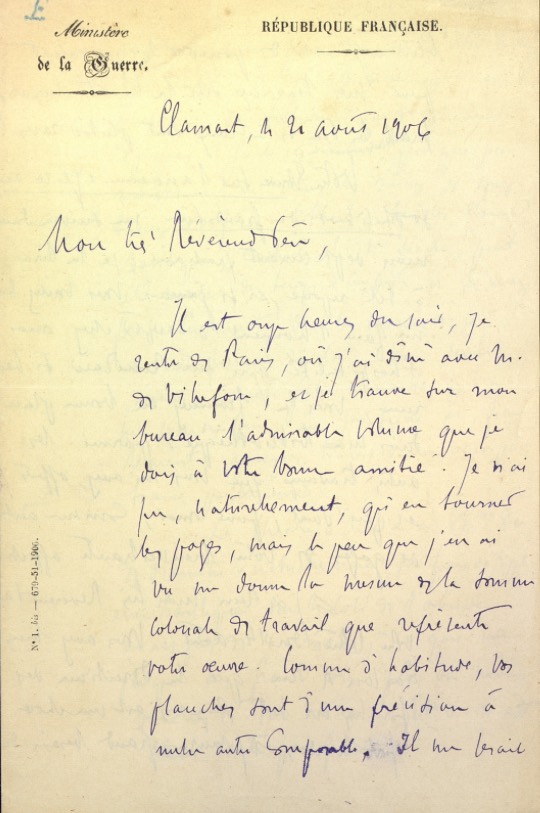 Ministère
de la Guerre.
RÉPUBLIQUE FRANÇAISE.
Clamart, le 21 août 1906
Mon très Révérend Père,
Il est onze heures du soir, je
rentre de Paris, où j'ai dîné avec M.
de Villefosse, et je trouve sur mon
bureau l'admirable volume que je
dois à votre bonne amitié. Je n'ai
pu, naturellement, qu'en tourner
les pages, mais le peu que j'en ai
vu me donne la mesure de la somme
colossale de travail que représente
votre œuvre. Comme d'habitude, vos
planches sont d'une précision à
nulle autre comparable. Il me serait
N° 1. bis — 679-51-1906.